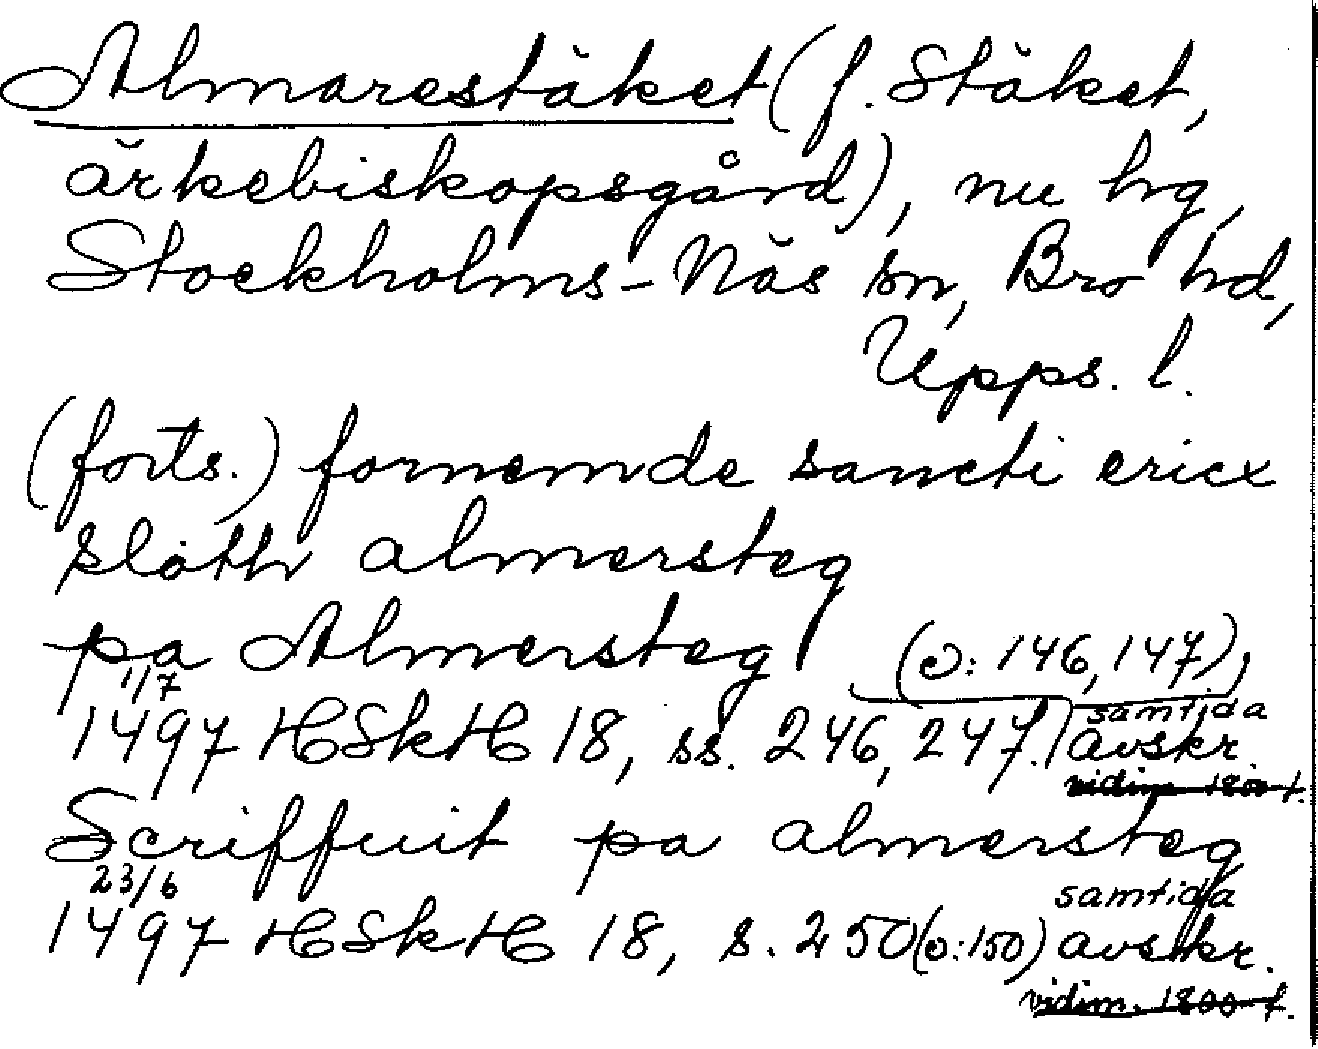 Almarestäket (f. Stäket,
ärkebiskopsgård), nu hg,
Stockholms-Näs sn, Bro hd,
Upps. l.
(forts.) fornemde sancti ericx
slöth almersteg
pa Almersteg (ɔ: 146, 147),
1/7
1497 HSkH 18, ss. 246, 247. samtida
avskr.
vidim. 1800-t.
Scriffuit pa almersteg
23/6 samtida
1497 HSkH 18, s. 250 (ɔ: 150) avskr.
vidim. 1800-t.